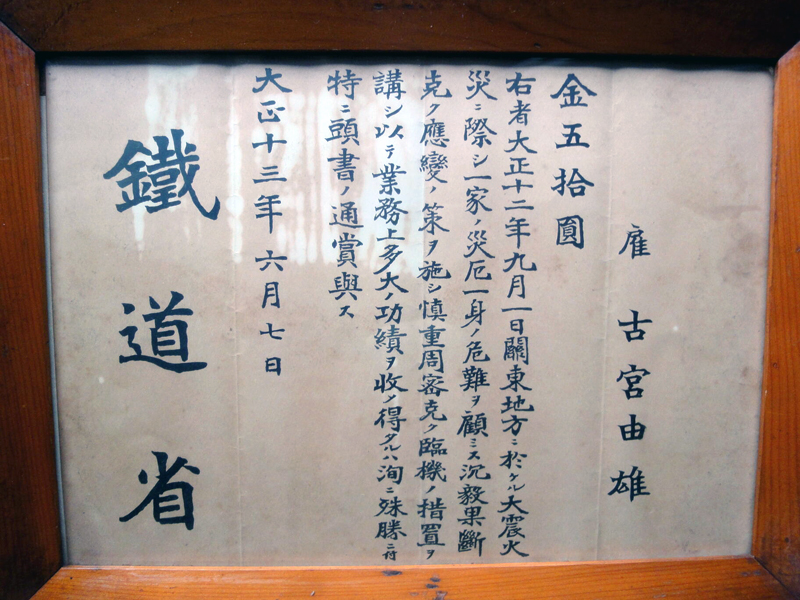 雇 古宮由雄
金五拾圓
右者大正十二年九月一日關東地方ニ於ケル大震火
災ニ際シ一家ノ災厄一身ノ危難ヲ顧ミス沉毅果斷
克ク應變ノ策ヲ施シ慎重周密克ク臨機ノ措置ヲ
講シ以テ業務上多大ノ功績ヲ收メ得タルハ洵ニ殊勝ニ付
特ニ頭書ノ通賞與ス
大正十三年六月七日
鐵道省